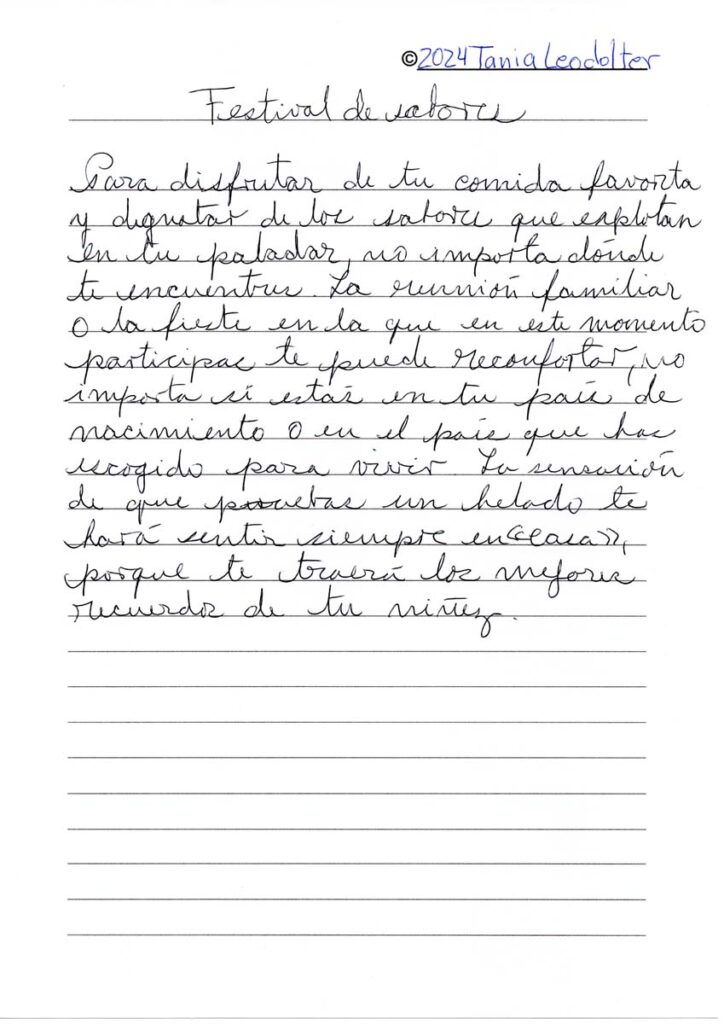 ©2024 Tania Leodolter
Festival de sabores
Para disfrutar de tu comida favorita
y degustar de los sabores que explotan
en tu paladar, no importa dónde
te encuentres. La reunión familiar
o la fiesta en la que en este momento
participas te puede reconfortar, no
importa si estás en tu país de
nacimiento o en el país que has
escogido para vivir. La sensación
de que pruebas un helado te
hará sentir siempre en «casa»,
porque te traerá los mejores
recuerdos de tu niñez.